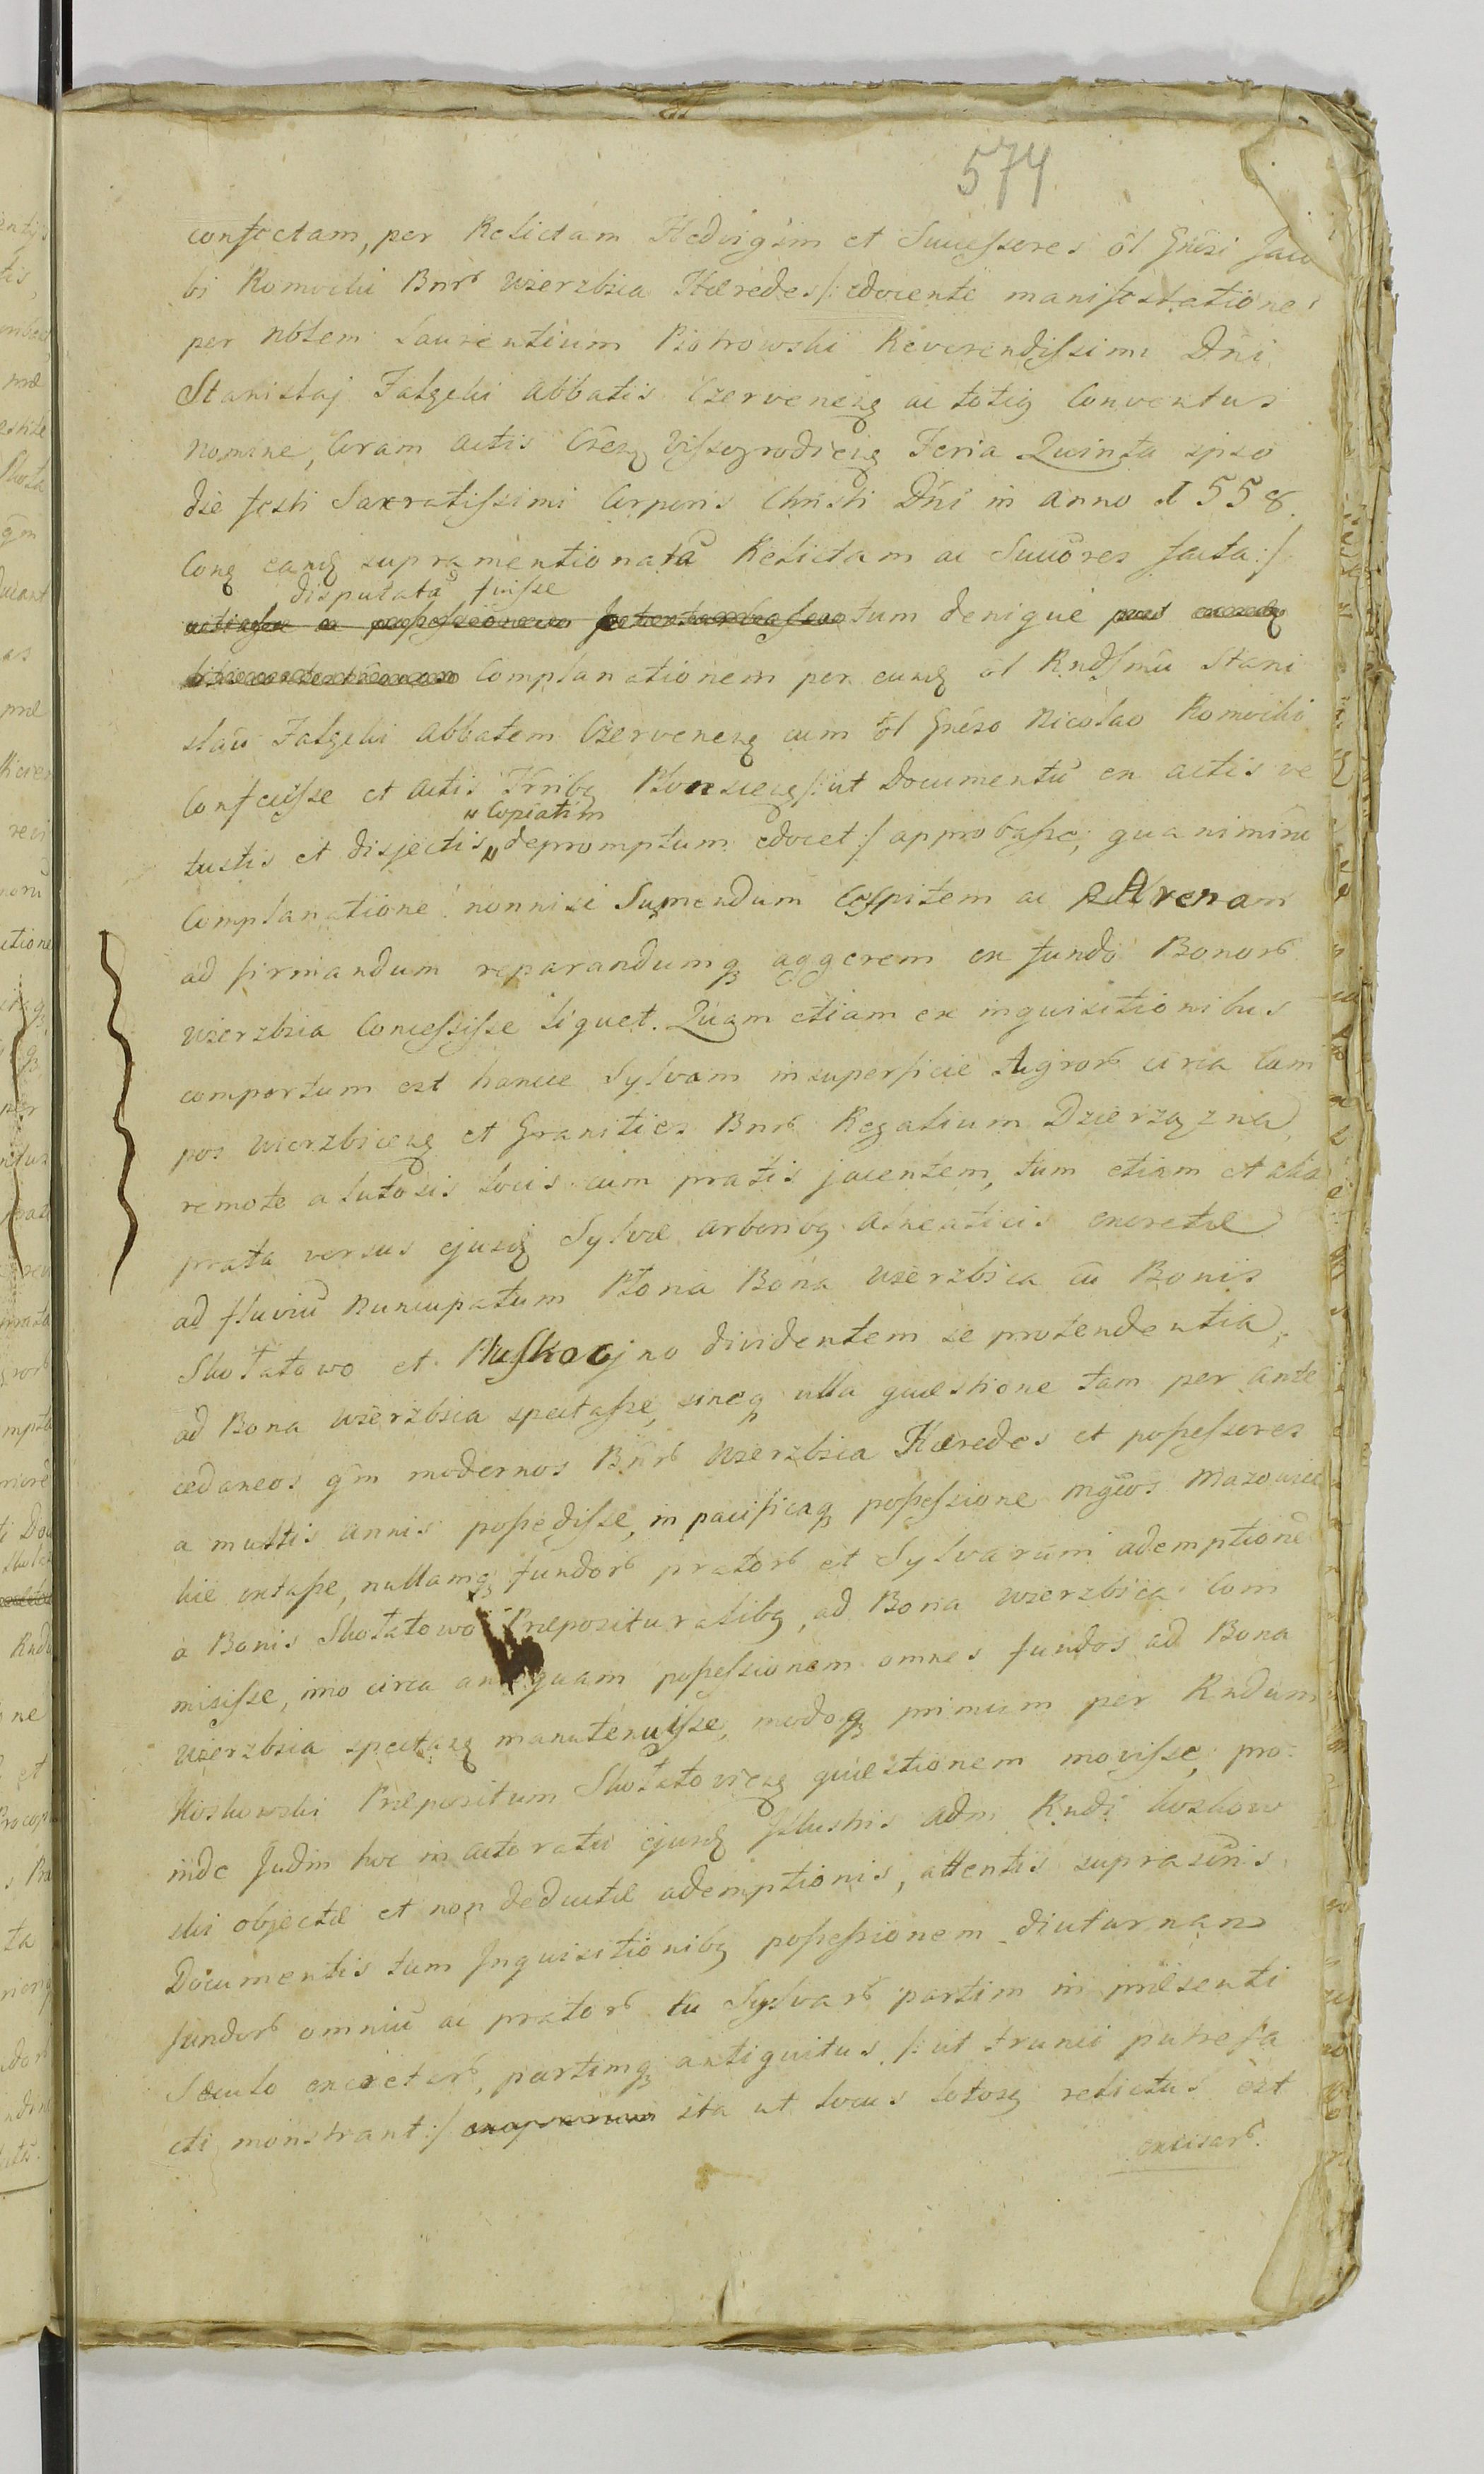 574
confectam, per Relictam Hedvigim et Successores ol Gnẽsi Jaco
bi Romocki Bnrb wierzbica Hæredes /: edocente manifestatione
per Nobłem Laurentium Piotrowski Reverendissimi Dñi
Stanislaj Falęcki Abbatis Czervenesɞ ac totig Conventus
nomine, Coram actis Cresɞ Vissogrodiesɞ Feria Quinta ipso
die festi Sacratissimi Corporis Christi Dñi in anno 1558.
Conɞ eandɞ supramentionatã Relictam ac Succõres facta :/
disputatã fuisse
tum denique
Complanationem per eundɞ ol Rndſmũ Stani
slaũ Falęcki Abbatem Czervenesɞ cum ol Gnẽso Nicolao Romocki
Confecisse et Actis Trribɞ Płocsiesɞ /: ut Documentũ ex actis ve
„ Copiatim
tustis et disjectis „ depromptum edocet :/ approbasse, qua nimirũ
Complanatione nonnisi Sumendum Cespitem ac Arenam
ad firmandum reparandumqɜ aggerem ex fundo Bonorb
wierzbica Concessisse liquet. Quam etiam ex inquisitionibus
compertum est hancce Sylvam in superficie Agrorb circa Cam
pos wierzbicesɞ et Granities Bnrb Regalium Dzierzązna
remote a lutosis locis cum pratis jacentem, tum etiam et alia
prata versus ejusdɞ Sylvæ arboribɞ alneaticis excretæ
ad fluviũ nuncupatum Płona Bona wierzbica cũ Bonis
Skołatowo et Pluskocjno dividentem se protendentia,
ad Bona wierzbica spectasse, sineqɜ ulla quæstione tam per ante
cedaneos qm̃ modernos Bnrb wierzbica Hæredes et possessores
a multis annis possedisse, in pacificaqɜ possessione Mgcos Mazowiec
kie extasse, nullamqɜ fundorb pratorb et Sylvarum ademptionẽ
a Bonis Skołatowo Præpositurałibɞ, ad Bona wierzbica Com
misisse, imo circa antiquam possessionem omnes fundos ad Bona
wierzbica spectansɞ manutenuisse, modoqɜ primum per Rndum
Koskowski Præpositum Skołatoviesɞ quæstionem movisse, pro
inde Judm̃ hoc in actoratu ejusdɞ Illustris Adm̃ Rndi koskow
ski objectæ et non deductæ ademptionis, attentis supraciñis
Documentis tum Inquisitionibɞ possessionem diuturnam
fundorb omniũ ac pratorb tũ Sylvarb partim in præsenti
Sæculo excretarb, partimqɜ antiquitus /: ut trunci putrefa
cti monstrant :/ ita ut locus lotosɞ relictus est
excisarb.